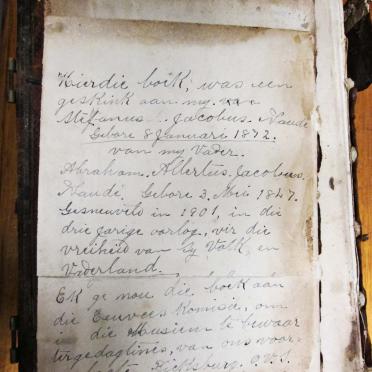 Hierdie boik, was een
geskink aan my. van
Stefanus. Jacobus. Naude
Gebore 8 Januari 1872.
van my Vader.
Abraham. Albertus. Jacobus.
Naudé. Gebore 3. Mei 1847.
Gesneuveld in 1901, in die
drie jarige oorlog, vir die
vreiheid van Sy Volk, en
Vaderland.
Ek ge nou die boek aan
die Eeuvees Komisie, om
in die Musium te bewaar
ter gedagtines, van ons voor-
Ficksburg. O.V.S.